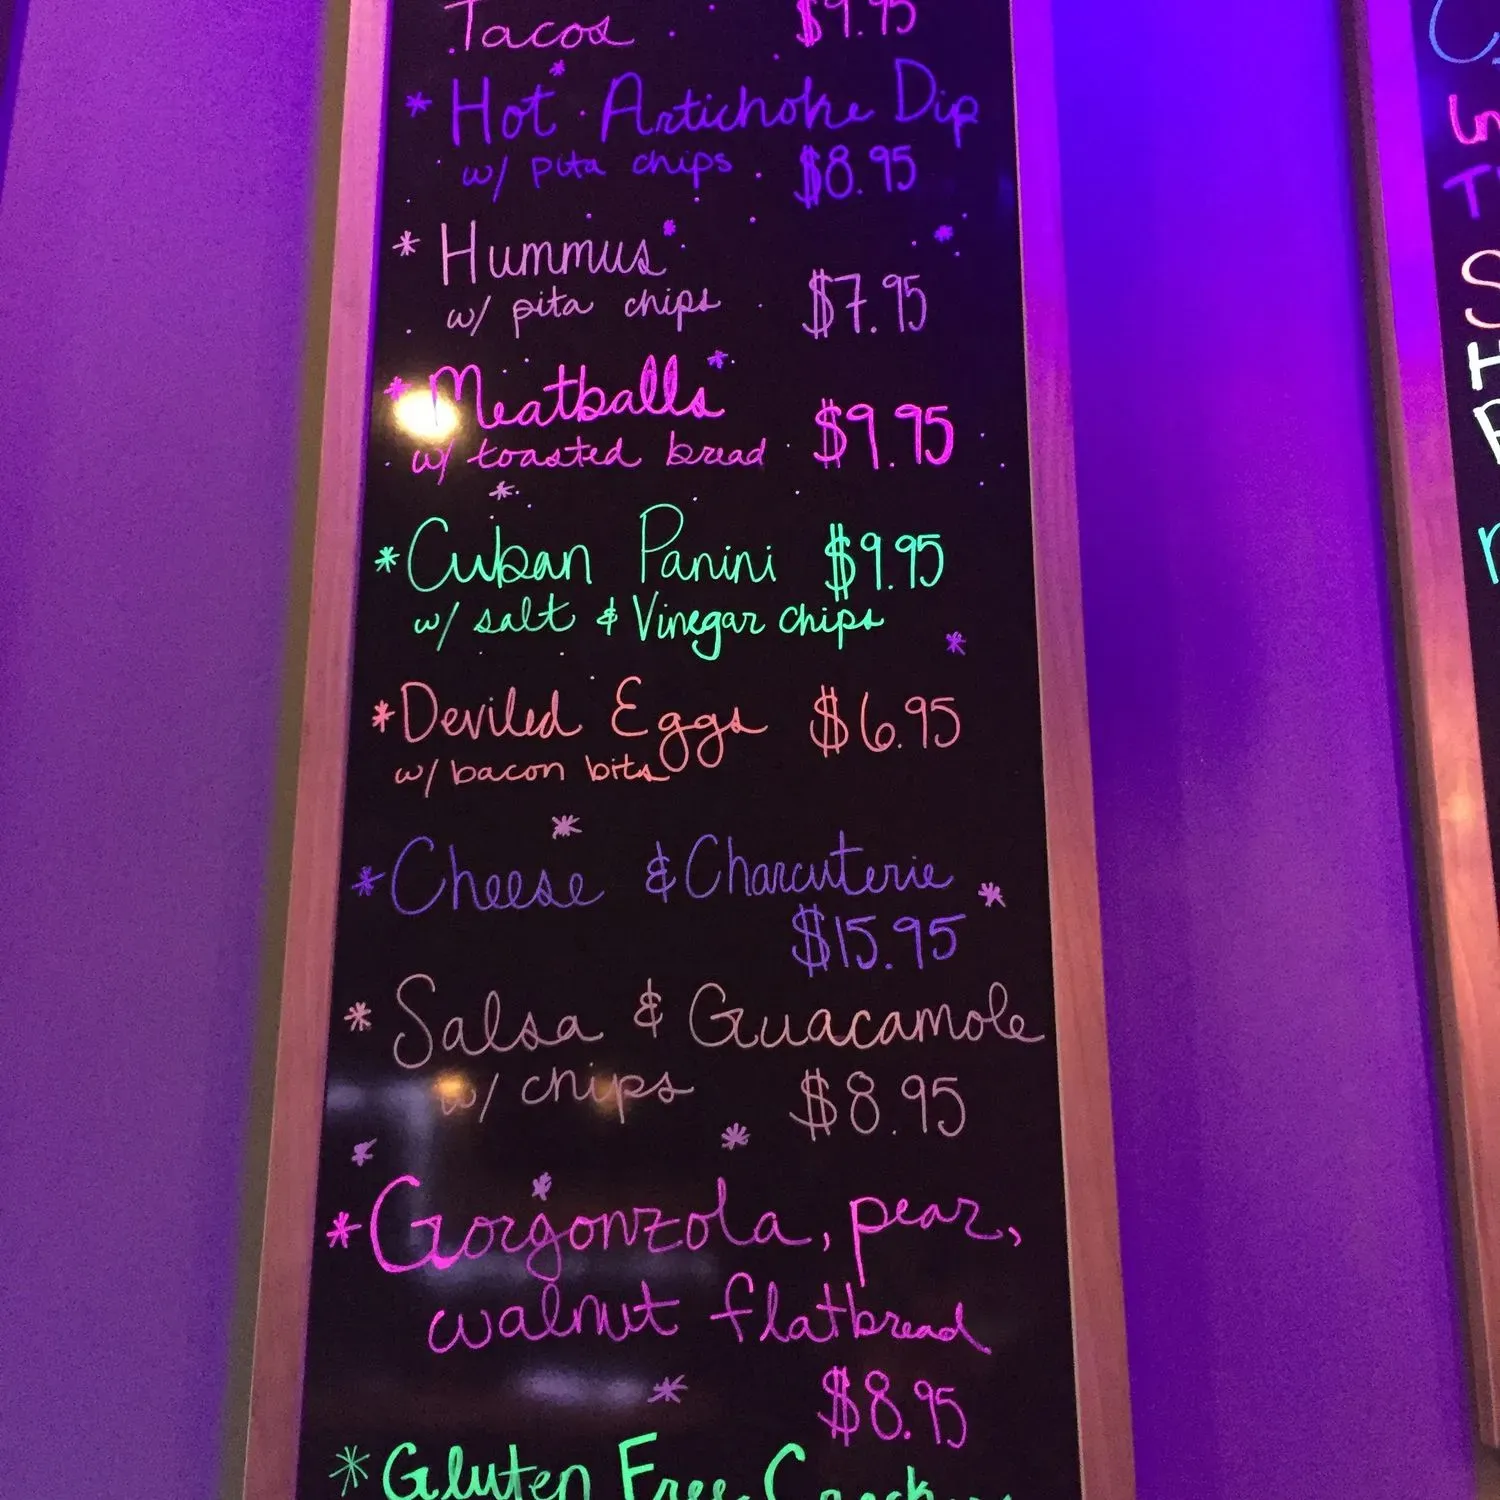 Tacos $9.95
* Hot Artichoke Dip
w/ pita chips $8.95
* Hummus
w/ pita chips $7.95
* Meatballs $9.95
w/ toasted bread
* Cuban Panini $9.95
w/ salt & Vinegar chips
* Deviled Eggs $6.95
w/ bacon bits
* Cheese & Charcuterie
$15.95
* Salsa & Guacamole
w/ chips $8.95
* Gorgonzola, pear,
walnut flatbread
$8.95
* Gluten Free Crackers